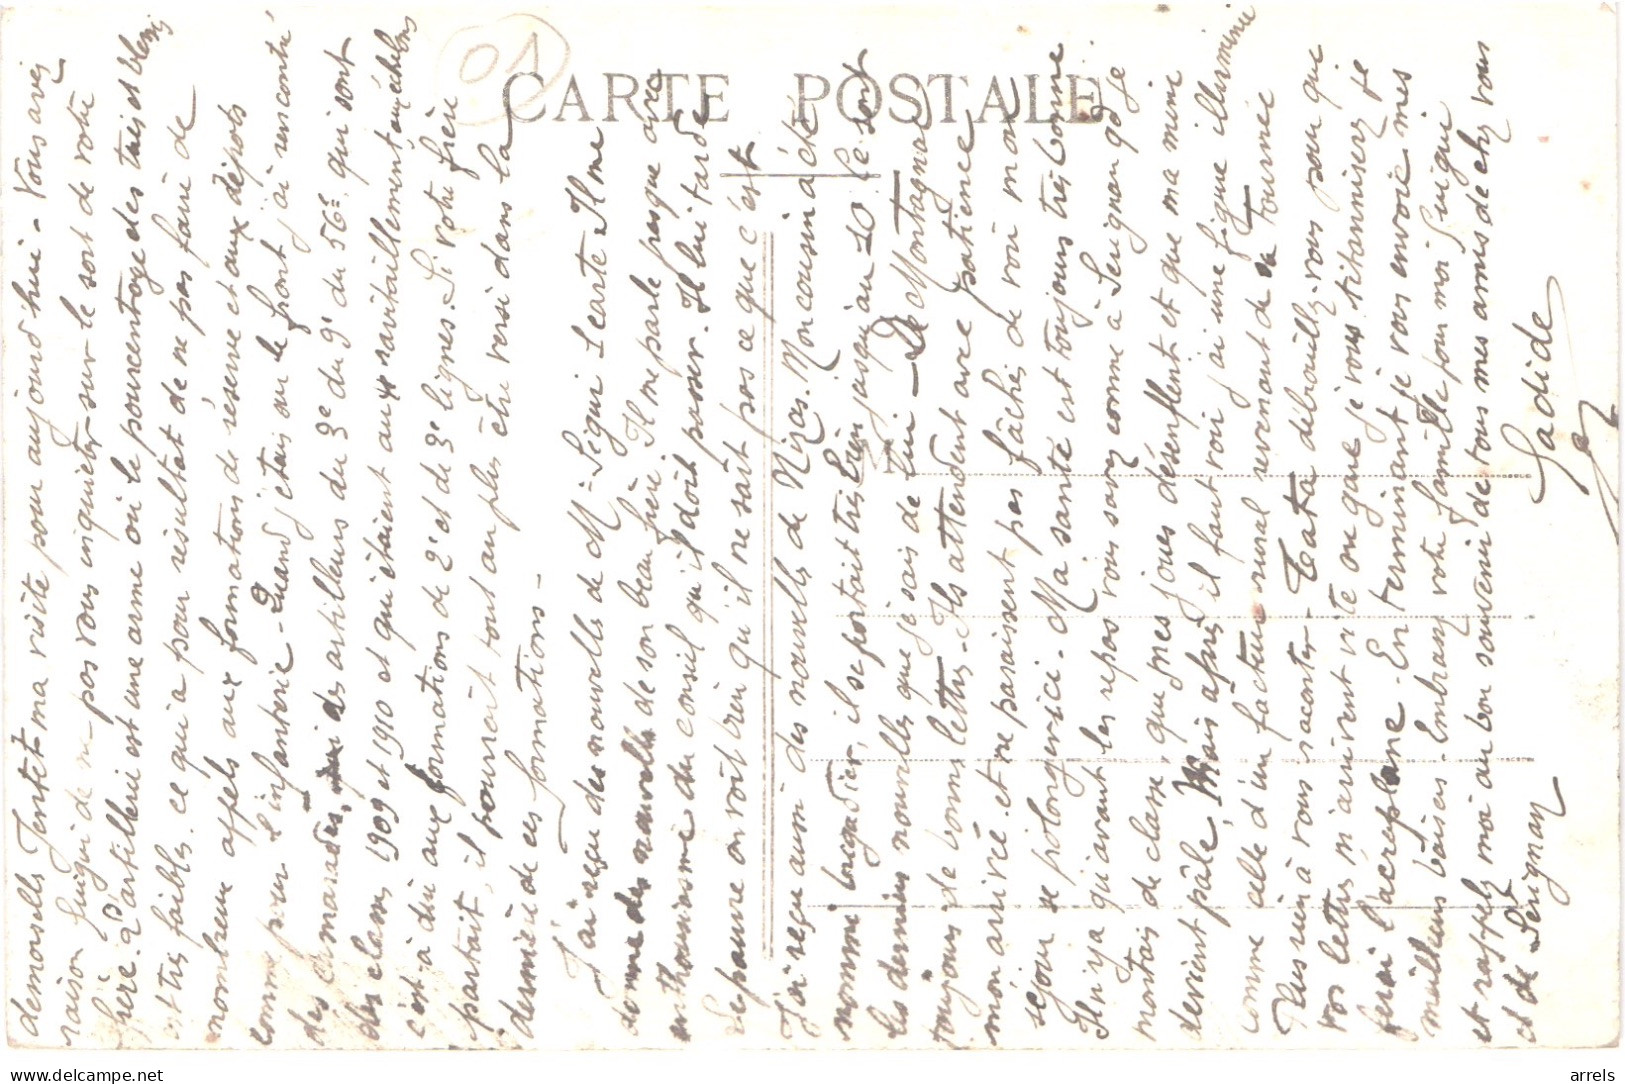 CARTE POSTALE
01
demoiselles Jentet ma visite pour aujourd'hui - Vous avez
raison Guigui de ne pas vous inquiéter sur le sort de votre
frère. L'artillerie est une arme où le pourcentage des tués et blessés
est très faible. ce qui a pour résultat de ne pas faire de
nombreux appels aux formations de réserve et aux dépôts
comme pour l'infanterie - Quand j'étais sur le front j'ai rencontré
des camarades, des artilleurs du 3e du 9e du 56e. qui sont
des classes 1909 et 1910 et qui étaient aux ravitaillement aux échelons
c'est à dire aux formations de 2e et de 3e lignes. Si votre frère
partait, il pourrait tout au plus être versé dans la
dernière de ces formations -
J'ai reçu des nouvelles de Mr Ségui Il me
donne des nouvelles de son beau frère Il me parle presque avec
enthousiasme du conseil qu'il doit passer. Il lui tarde
Le pauvre on voit bien qu'il ne sait pas ce que c'est
J'ai reçu aussi des nouvelles de Nizas. Mon cousin a été
nommé brigadier, il se portait très bien jusqu'au 10. Ce sont
les dernières nouvelles que je sais de lui - De Montagnac
toujours de bonnes lettres. Ils attendent avec patience
mon arrivée et ne paraissent pas fâchés de voir mon
séjour se prolonger ici. Ma santé est toujours très bonne
Il n'y a qu'avant les repas vous savez comme à Serignan qd je
mortais de classe que mes joues désenflent et que ma mine
devient pâle, Mais après il faut voir j'ai une figure illuminée
comme celle d'un facteur rural revenant de sa Tournée
Plus rien à vous raconter - Tata débrouillez-vous pour que
vos lettres m'arrivent vite ou gare je vous titannisez je
ferai l'aéroplane. En terminant je vous envoie mes
meilleurs baisers. Embrassez votre famille pour moi Guigui
et rappelez moi au bon souvenir de tous mes amis de chez vous
et de Sérignan
Sadide
M